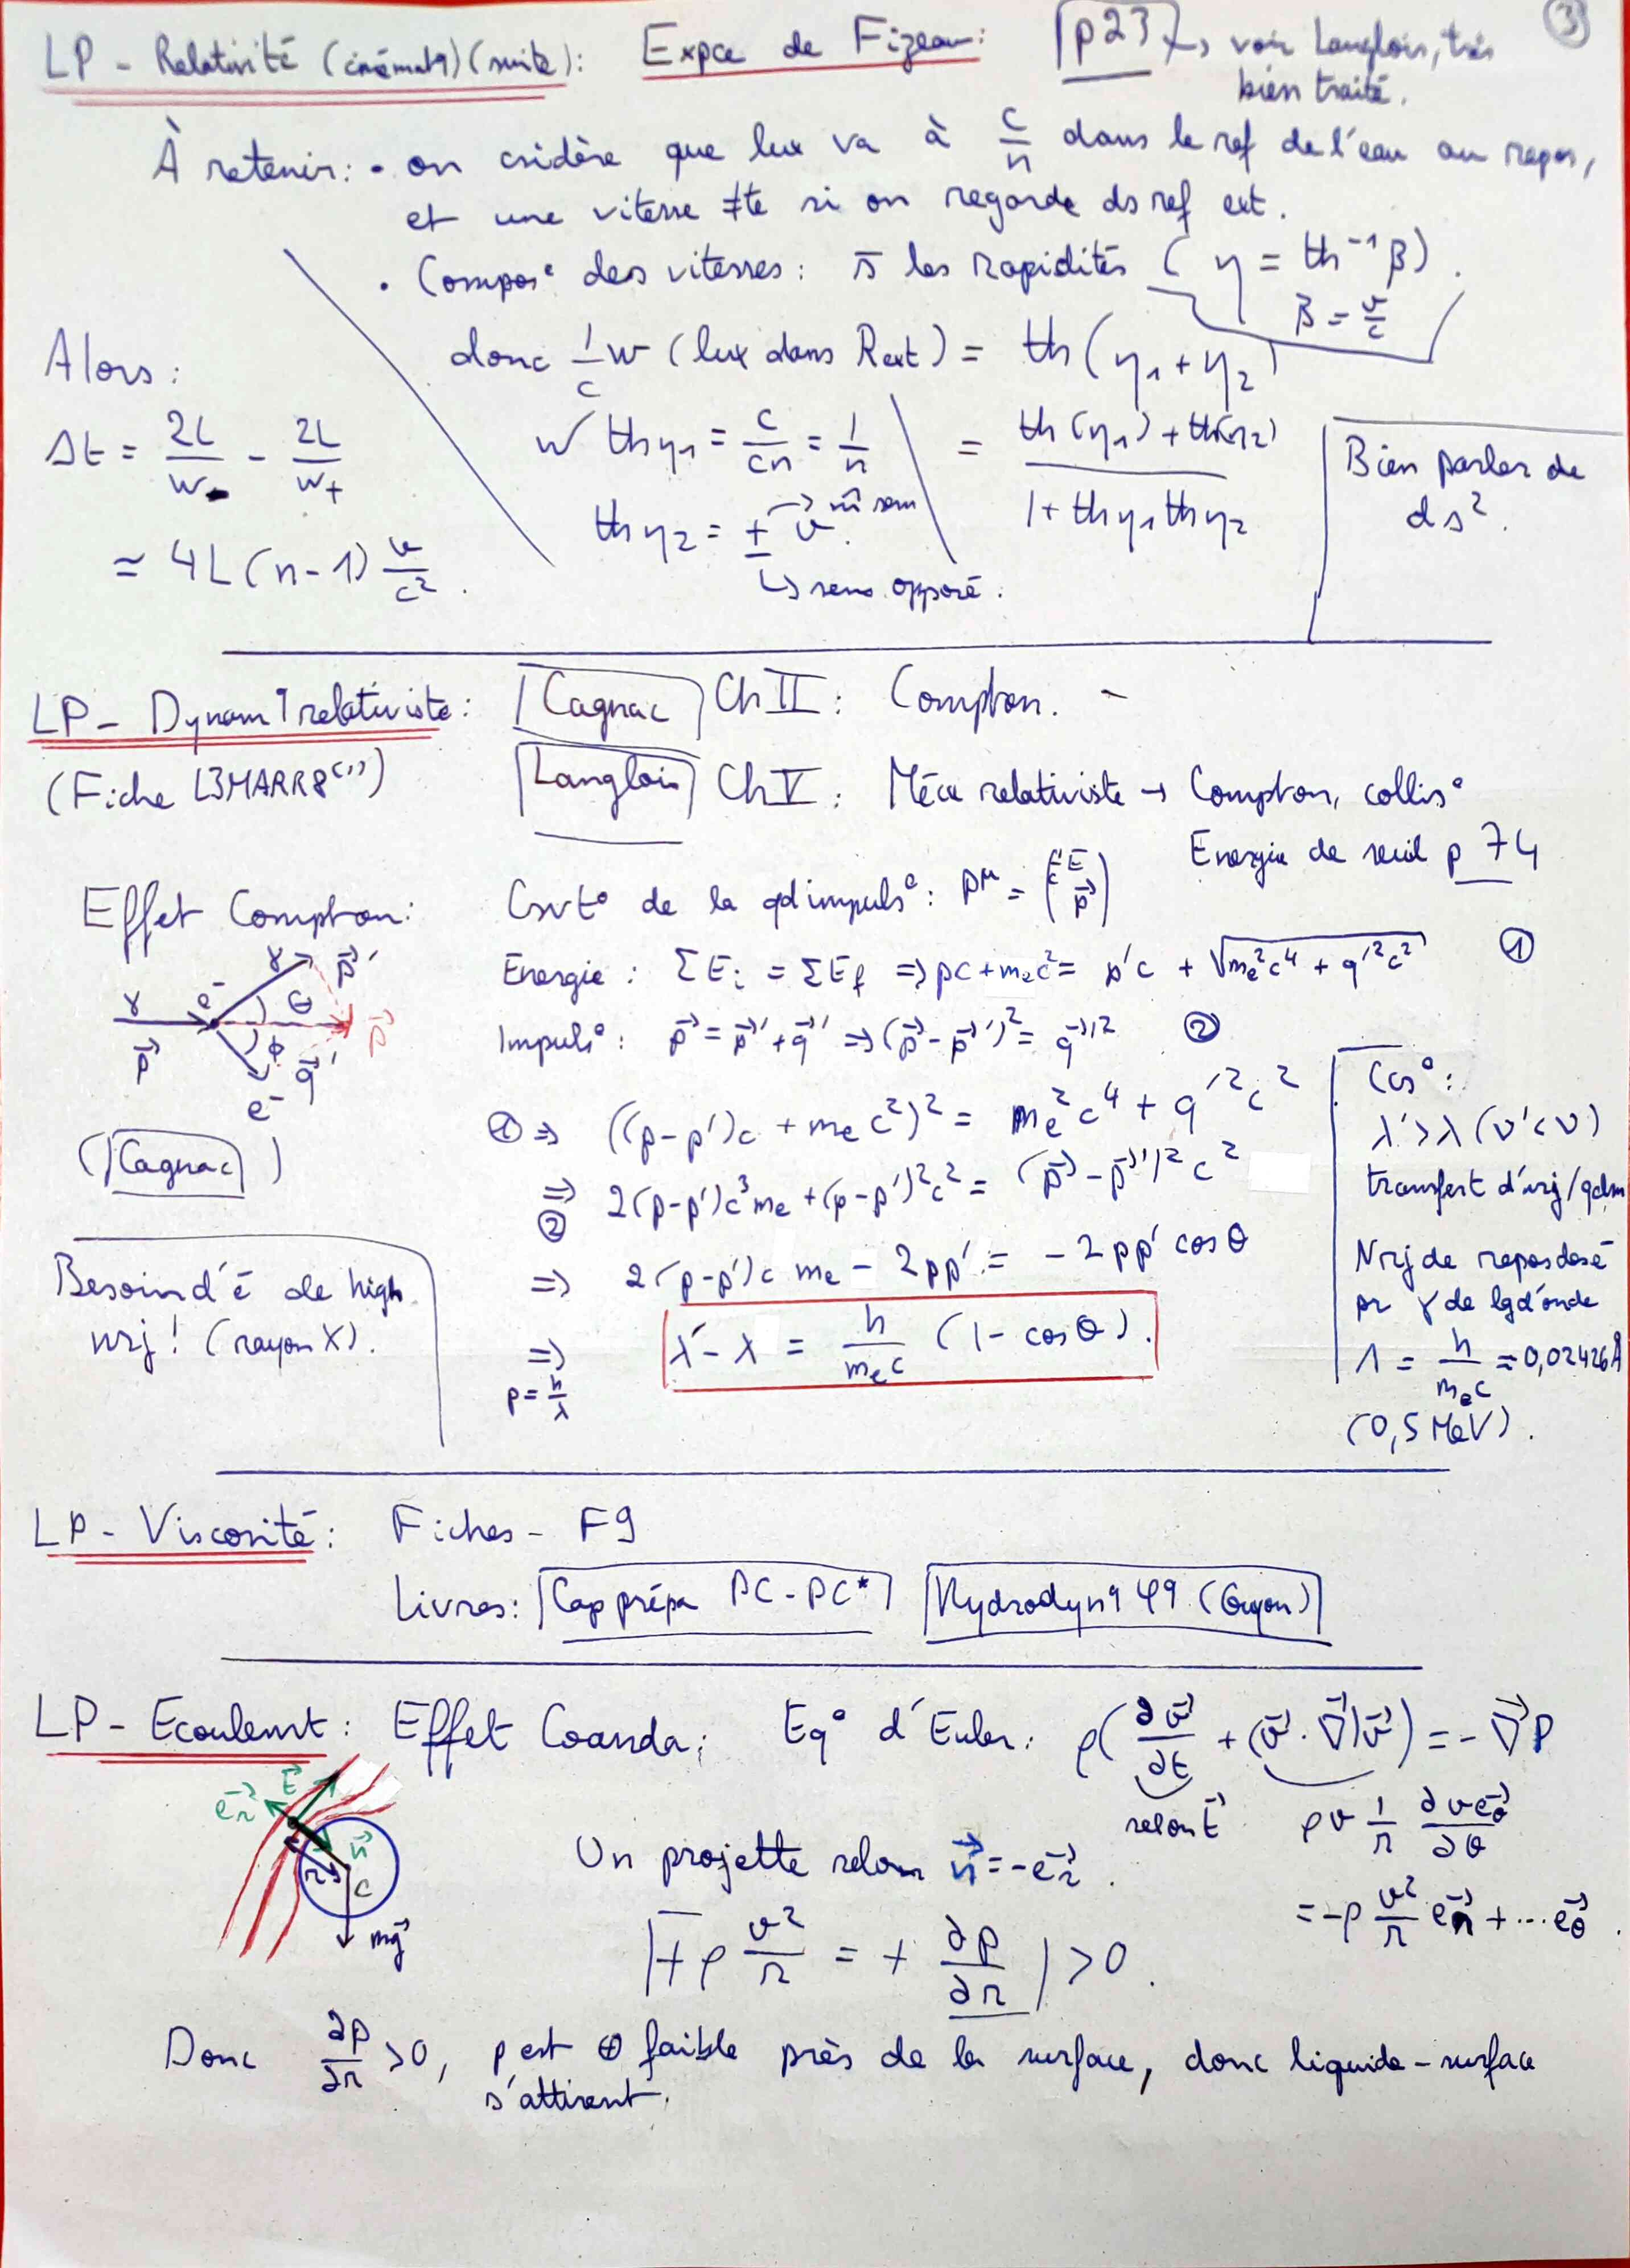 LP - Relativité (cinémat9) (suite): Expce de Fizeau: p23 → voir Langlois, très bien traité. ③
À retenir: • on csidère que lux va à c/n dans le ref de l'eau au repos,
et une vitesse ≠te si on regarde ds ref ext.
• Compos° des vitesses: les rapidités (η = th⁻¹ β).
β = v/c
donc 1/c w (lux dans Rext) = th(η₁ + η₂)
w thη₁ = c/cn = 1/n
= (th(η₁) + th(η₂)) / (1 + thη₁ thη₂)
thη₂ = ± v. → m̂ sens
↳ sens opposé.
Alors:
Δt = 2L/w₋ - 2L/w₊
≃ 4L(n-1) v/c².
Bien parler de
ds².
LP - Dynam9 relativiste: Cagnac Ch II: Compton. -
(Fiche L3MARR8(''))
Langlois Ch V: Méca relativiste → Compton, collis°
Energie de seuil p 74
Effet Compton:
γ p⃗ e⁻ γ p⃗' θ p⃗ ϕ q⃗' e⁻
(Cagnac)
Csvt° de la qd impuls°: pᵘ = (E/c p⃗)
Energie: ΣEi = ΣEf ⇒ pc + mec² = p'c + √(me²c⁴ + q'²c²) ①
Impuls°: p⃗ = p⃗' + q⃗' ⇒ (p⃗ - p⃗')² = q⃗'² ②
① ⇒ ((p-p')c + me c²)² = me²c⁴ + q'²c²
⇒ ② 2(p-p')c³me + (p-p')²c² = (p⃗ - p⃗')²c²
⇒ 2(p-p')c me - 2pp' = - 2pp' cosθ
⇒ p = h/λ λ' - λ = h/mec (1 - cosθ).
Besoin d'é de high
nrj! (rayon X).
Cs°:
λ' > λ (ν' < ν)
transfert d'nrj/qdm
Nrj de repos des é
pr γ de lg d'onde
Λ = h/mec = 0,02426 Å
(0,5 MeV).
LP - Viscosité: Fiches - F9
Livres: Cap prépa PC-PC* Hydrodyn9 φ9 (Guyon)
LP - Ecoulemt: Effet Coanda: Eq° d'Euler: ρ(∂v⃗/∂t + (v⃗ · ∇⃗)v⃗) = - ∇⃗P
selon t⃗ ρv 1/r ∂v e⃗θ/∂θ
= -ρ v²/r e⃗r + ... e⃗θ.
e⃗r t⃗ n⃗ r C mg⃗
On projette selon n⃗ = -e⃗r.
+ρ v²/r = + ∂p/∂r > 0.
Donc ∂p/∂r > 0, p est ⊕ faible près de la surface, donc liquide - surface
s'attirent.